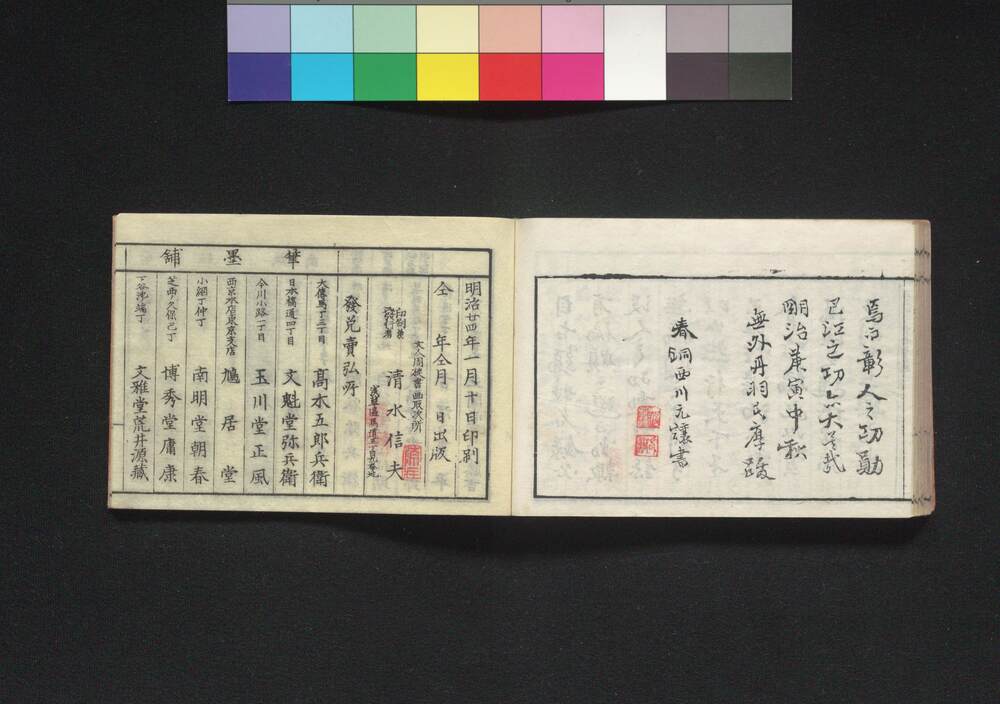 焉乃彰人之功勛
己江之功亦大矣哉
明治庚寅中秋
無外丹羽氏厚跋
春洞西川元讓書
明治廿四年一月十日印刷
仝年仝月 日出版
印刷兼
發行者
清水信夫
發兌賣弘所
筆墨舖
大傳馬丁三丁目 高木五郎兵衛
日本橋通四丁目 文魁堂弥兵衛
今川小路一丁目 玉川堂正風
西京本店東京支店 鳩居堂
小網丁仲丁 南明堂朝春
芝西ノ久保巴丁 博秀堂庸康
下谷池端丁 文雅堂荒井源藏